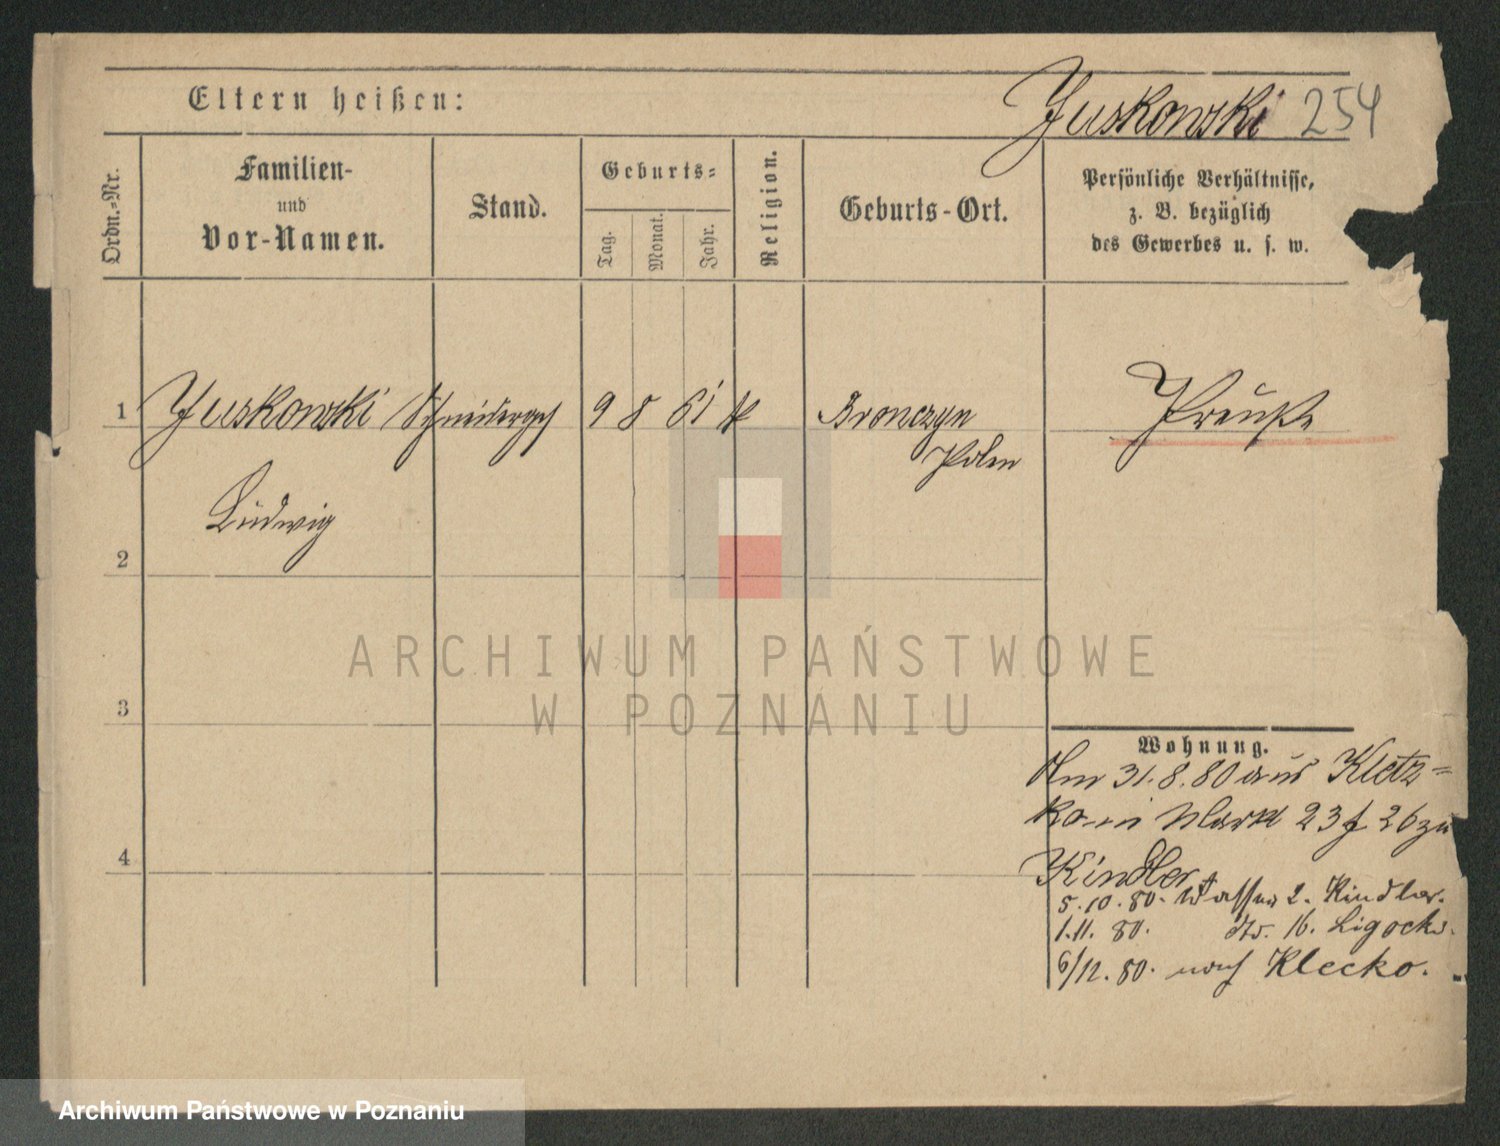 Eltern heißen:
Juskowski 254
Ordn.-Nr.
Familien-
und
Vor-Namen.
Stand.
Geburts-
Tag.
Monat.
Jahr.
Religion.
Geburts-Ort.
Persönliche Verhältnisse,
z. B. bezüglich
des Gewerbes u. s. w.
1 Juskowski Schneiderges 9 8 61 k Bronczyn Preuße
Polen
Ludwig
2
3
4
ARCHIWUM PAŃSTWOWE
W POZNANIU
Wohnung.
Am 31.8.80 aus Kletz-
ko in Markt 23 f 26 zu
Kindler
5.10.80. Wasser 2. Kindler.
1.11.80. dto. 16. Ligocki.
6/12.80. nach Klecko.
Archiwum Państwowe w Poznaniu